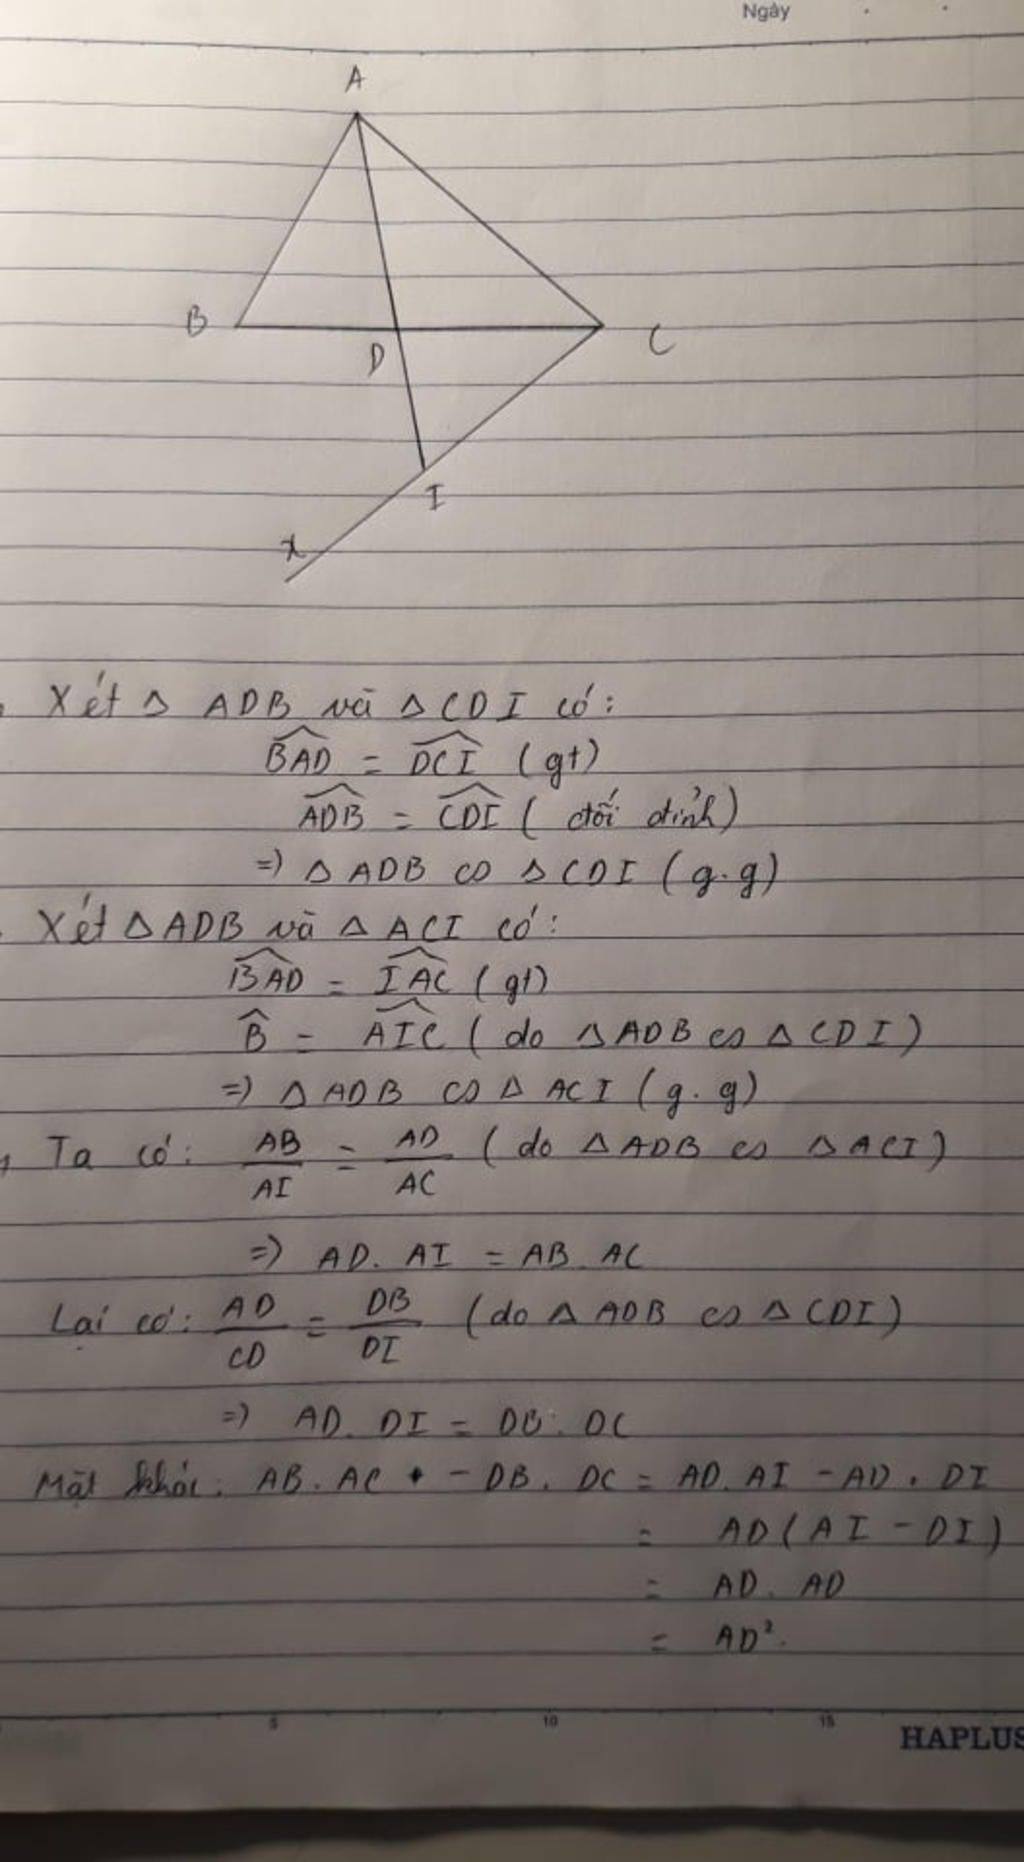 Ngày
A
B
D
C
I
x
Xét △ ADB và △ CDI có:
$\widehat{BAD}$ = $\widehat{DCI}$ (gt)
$\widehat{ADB}$ = $\widehat{CDI}$ ( đối đỉnh)
=) △ ADB ∽ △ CDI (g.g)
Xét △ ADB và △ ACI có:
$\widehat{BAD}$ = $\widehat{IAC}$ (gt)
$\widehat{B}$ = $\widehat{AIC}$ ( do △ ADB ∽ △ CDI)
=) △ ADB ∽ △ ACI (g.g)
Ta có: $\frac{AB}{AI}$ = $\frac{AD}{AC}$ ( do △ ADB ∽ △ ACI)
=) AD. AI = AB. AC
Lại có: $\frac{AD}{CD}$ = $\frac{DB}{DI}$ (do △ ADB ∽ △ CDI)
=) AD. DI = DB. DC
Mặt khác: AB. AC - DB. DC = AD. AI - AD. DI
= AD(AI - DI)
= AD. AD
= AD².
5 10 15
HAPLUS